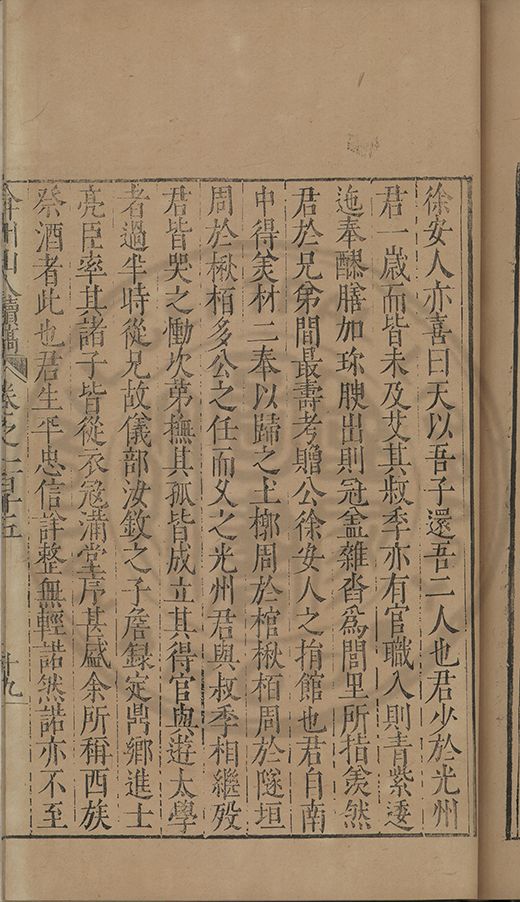 徐安人亦喜曰天以吾子還吾二人也君少於光州
君一歲而皆未及艾其叔季亦有官職入則青紫逶
迤奉醪膳加珎腴出則冠盖雜沓爲閭里所指羨然
君於兄弟間最壽考贈公徐安人之捐館也君自南
中得美材二奉以歸之土槨周於棺楸栢周於隧垣
周於楸栢多公之任而父之光州君與叔季相繼歿
君皆哭之慟次第撫其孤皆成立其得官與遊太學
者過半時從兄故儀部汝敘之子詹録定鼎鄉進士
亮臣率其諸子皆從衣冠滿堂序甚盛余所稱西族
祭酒者此也君生平忠信詳整無輕諾然諾亦不至
弇州山人續稿 卷之一百十五 十九